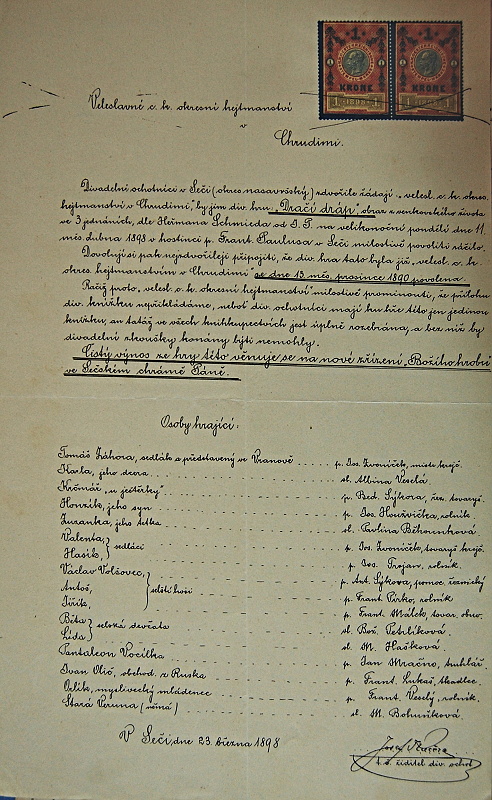 1 1
KRONE KRONE
1 1898 1 1 1898 1
Veleslavné c. k. okresní hejtmanství
v
Chrudimi.
Divadelní ochotníci v Seči (okres nasavrcký) zdvořile žádají „velesl. c. k. okres.
hejtmanství v Chrudimi", by jim div. hru „Dračí dráp" obraz z venkovského života
ve 3 jednáních, dle Heřmana Schmieda od J. T. na velikonoční pondělí dne 11.
měs. dubna 1898 v hostinci p. Frant. Paulusa v Seči milostivě povoliti ráčilo.
Dovolují si pak nejzdvořileji připojiti, že div. hra tato byla již „velesl. c. k.
okres. hejtmanstvím v Chrudimi" se dne 13. měs. prosince 1890 povolena.
Račiž proto „velesl. c. k. okresní hejtmanství" milostivě prominouti, že přílohu
div. knížku nepřikládáme, neboť div. ochotníci mají ku hře této jen jedinou
knížku, an tatáž ve všech knihkupectvích jest úplně rozebrána, a bez níž by
divadelní zkoušky konány býti nemohly.
Čistý výnos ze hry této věnuje se na nové zřízení „Božího hrobu
ve Sečském chrámě Páně.
Osoby hrající:
Tomáš Záhora, sedlák a představený ve Vranově .... p. Jos. Zvoníček, mistr krejč.
Karla, jeho dcera ..... sl. Albina Veselá
Krčmář „u ještěrky" ..... p. Bed. Sýkora, řez. tovaryš.
Honzík, jeho syn ..... p. Jos. Houžvička, rolník
Zuzanka, jeho tetka ..... sl. Pavlina Běhounková
Valenta, ..... p. Jos. Zvoníček, tovaryš krejč.
Hasík, } sedláci ..... p. Jos. Trojan, rolník.
Václav Volšovec, ..... p. Ant. Sýkora, pomoc. řeznický
Antoš, } selští hoši ..... p. Frant. Pirko, rolník
Jiřík, ..... p. Frant. Málek, tovar. obuv.
Běta } selská děvčata ..... sl. Bož. Petrlíková.
Lída ..... sl. M. Hašková.
Pantaleon Vocílka ..... p. Jan Mračno, truhlář.
Ivan Olič, obchod. z Ruska ..... p. Frant. Lukáš, tkadlec.
Orlík, myslivecký mládenec ..... p. Frant. Veselý, rolník.
Stará Veruna (němá) ..... sl. M. Bohuníková.
V Seči, dne 23. března 1898
Josef
t. č. ředitel div. ochot.